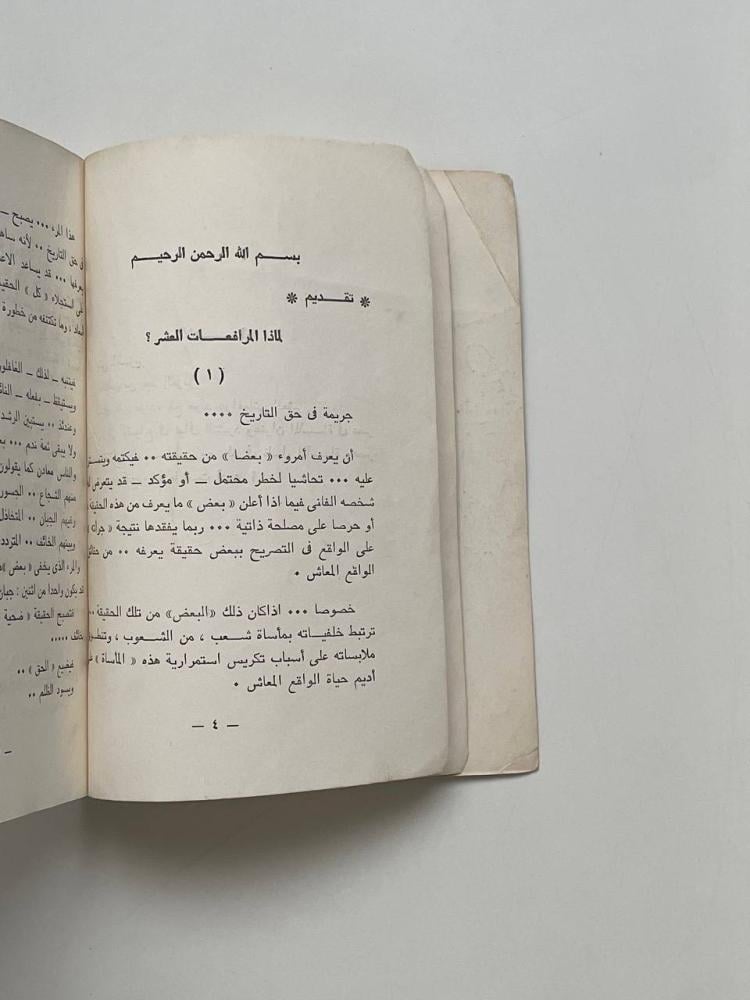 بســم الله الرحمن الرحيــم
* تقــديم *
لماذا المرافعــات العشر ؟
( ١ )
جريمة فى حق التاريخ ••••
أن يعرف أمروء « بعضا » من حقيقته •• فيكتمه
عليه ••• تحاشيا لخطر محتمل ــ أو مؤكد ــ قد يتعرض
شخصه الفانى فيما اذا أعلن « بعض » ما يعرف من هذه
أو حرصا على مصلحة ذاتية ••• ربما يفقدها نتيجة « جرأته »
على الواقع فى التصريح ببعض حقيقة يعرفه •• من
الواقع المعاش •
خصوصا ••• اذاكان ذلك «البعض» من تلك الحقيقة ••
ترتبط خلفياته بمأساة شعب ، من الشعوب ،
ملابساته على أسباب تكريس استمرارية هذه « المأساة »
أديم حياة الواقع المعاش •
— ٤ —
هذا المرء ••• يصبح ــ
فى حق التاريخ •• لأنه
يعرفها ••• قد يساعد
استجلاء « كل »
وما تكتنفه من خطورة
فيتنبه ــ لذلك ــ
ويستيقظ ــ بفعله ــ
وعندئذ •• يستبين الرشد
ولا يبقى ثمة ندم •••
والناس معادن كما يقولون
منهم الشجاع •• الجسور
وفيهم الجبان •• المتخاذل
وبينهم الخائف •• المتردد
والمرء الذى يخفى « بعض
قد يكون واحدا من اثنين : جبان
فتصبح الحقيقة « ضحية
خائف •••••
فيضيع « الحق » ••
ويسود الظلم ••